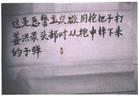 这是恶警孟庆波用枪把子打
姜洪录头部时从枪中掉下来
的子弹